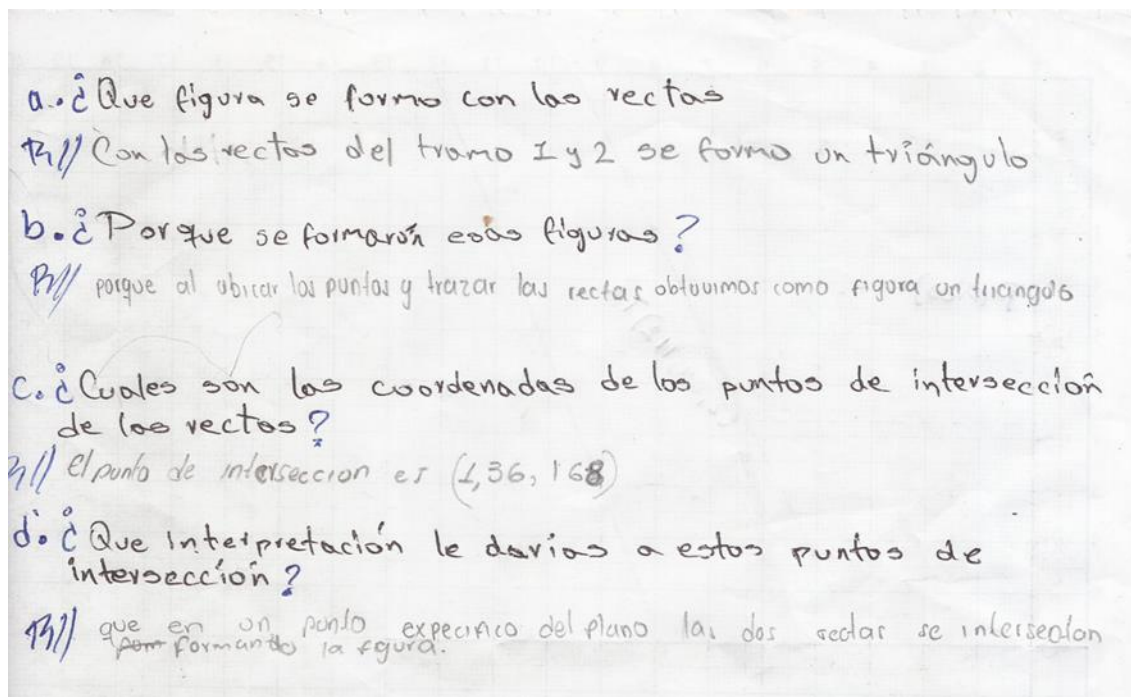 a. ¿Que figura se formo con las rectas
R// Con las rectas del tramo 1 y 2 se formo un triángulo
b. ¿Porque se formarón esas figuras?
R// porque al ubicar los puntos y trazar las rectas obtuvimos como figura un triangulo
c. ¿Cuales són las coordenadas de los puntos de intersección
de las rectas?
R// El punto de interseccion es (1,36, 168)
d. ¿Que interpretación le darias a estos puntos de
intersección?
R// que en un punto expecifico del plano las dos rectas se intersectan
formando la figura.